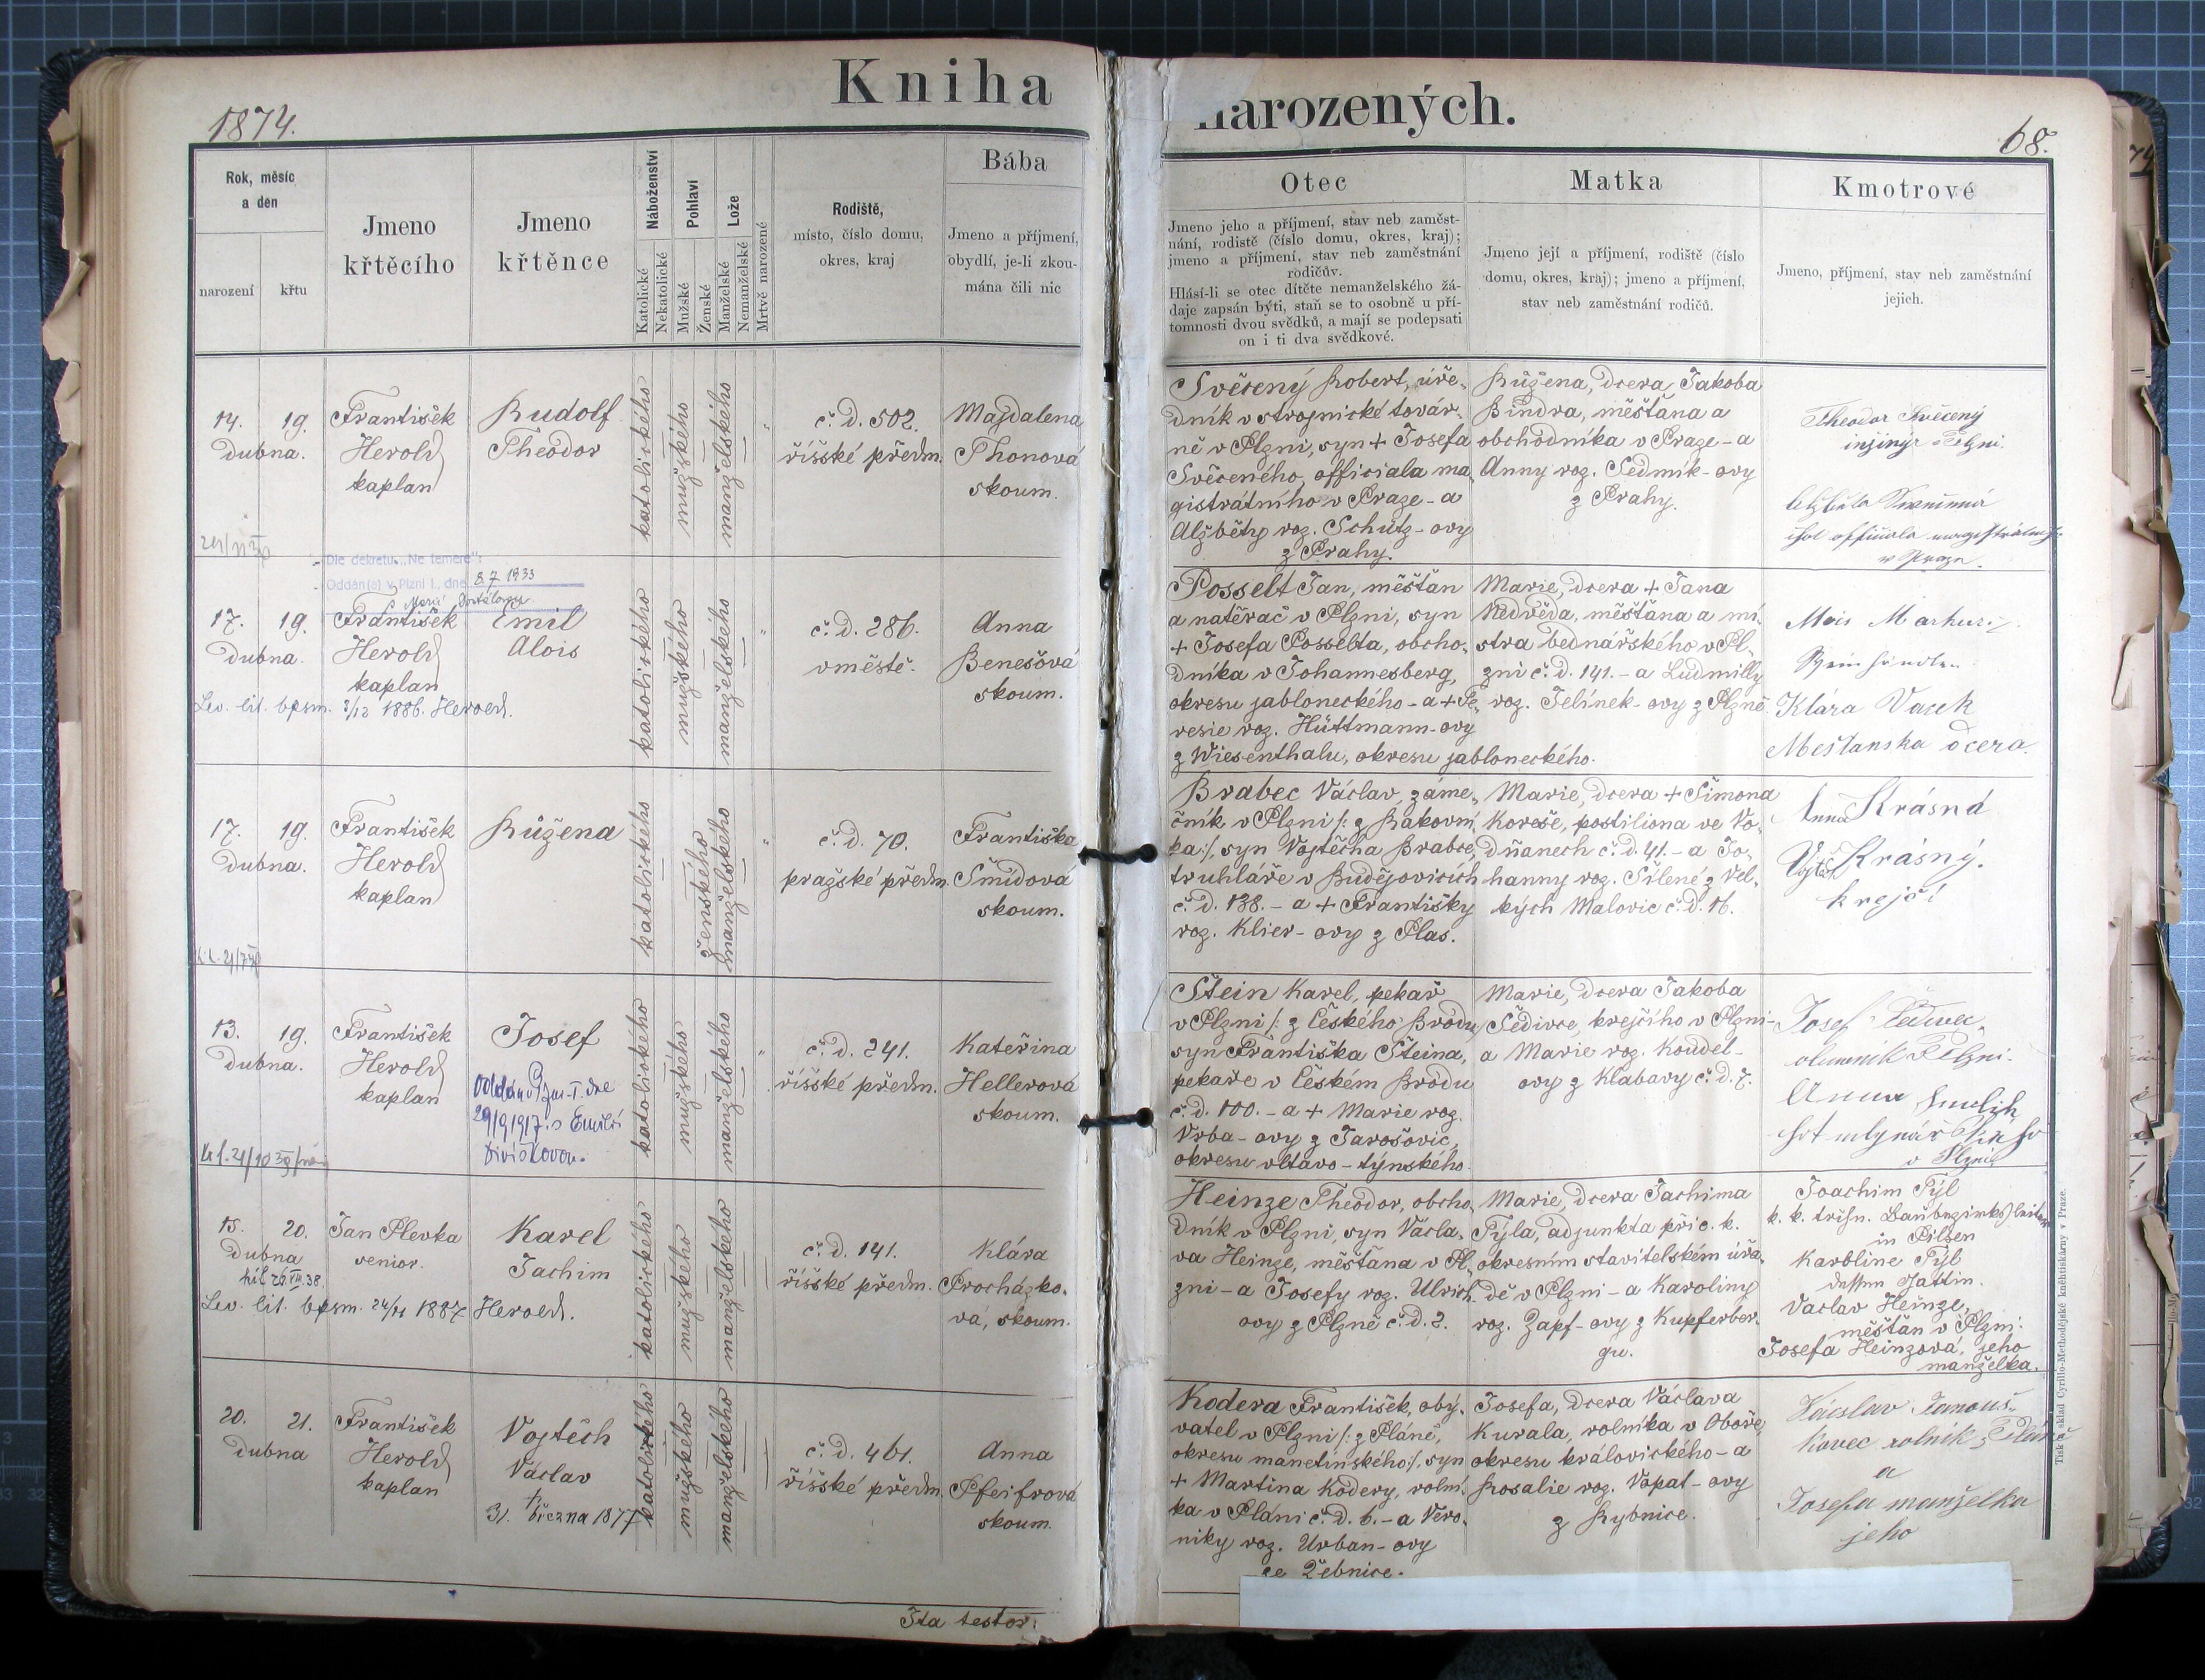 Kniha
narozených.
1874.
68.
Rok, měsíc
a den
narození
křtu
Jmeno
křtěcího
Jmeno
křtěnce
Náboženství
Katolické
Nekatolické
Pohlaví
Mužské
Ženské
Lože
Manželské
Nemanželské
Mrtvě narozené
Rodiště,
místo, číslo domu,
okres, kraj
Bába
Jmeno a příjmení,
obydlí, je-li zkou-
mána čili nic
Otec
Jmeno jeho a příjmení, stav neb zaměst-
nání, rodistě (číslo domu, okres, kraj);
jmeno a příjmení, stav neb zaměstnání
rodičův.
Hlásí-li se otec dítěte nemanželského žá-
daje zapsán býti, staň se to osobně u pří-
tomnosti dvou svědků, a mají se podepsati
on i ti dva svědkové.
Matka
Jmeno její a příjmení, rodiště (číslo
domu, okres, kraj); jmeno a příjmení,
stav neb zaměstnání rodičů.
Kmotrové
Jmeno, příjmení, stav neb zaměstnání
jejich.
14. 19.
Dubna.
František
Herold
kaplan
Rudolf
Theodor
katolického
mužského
manželského
č. d. 502.
říšské předm.
Magdalena
Thonová
skoum.
Svěcený Robert, úře-
dník v strojnické továr-
ně v Plzni, syn + Josefa
Svěceného, officiala ma-
gistrátního v Praze - a
Alžběty roz. Schütz-ovy
z Prahy.
Růžena, dcera Jakoba
Bindra, měšťana a
obchodníka v Praze - a
Anny roz. Sedmik-ovy
z Prahy.
Theodor Svěcený
inžinýr v Plzni.
v Praze.
Dle dekretu „Ne temere":
Oddán(a) v Plzni I., dne 8.7 1933
17. 19.
Dubna.
František
Herold
kaplan
Emil
Alois
Lev. lit. bpsm. 3/12 1886. Herold.
katolického
mužského
manželského
č. d. 286.
v městě.
Anna
Benešová
skoum.
Posselt Jan, měšťan
a natěrač v Plzni, syn
+ Josefa Posselta, obcho-
dníka v Johannesberg,
okresu jabloneckého - a + Te-
resie roz. Hüttmann-ovy
z Wiesenthalu, okresu jabloneckého.
Marie, dcera + Jana
Nedvěda, měšťana a mi-
stra bednářského v Pl-
zni č. d. 141. - a Ludmilly
roz. Jelínek-ovy z Plzně.
Klára Vacek
Mešťanska dcera.
17. 19.
Dubna.
František
Herold
kaplan
Růžena
katolického
ženského
manželského
č. d. 70.
pražské předm.
Františka
Šmídová
skoum.
Brabec Václav, záme-
čník v Plzni /: z Rakovní-
ka :/, syn Vojtěcha Brabce,
truhláře v Budějovicích
č. d. 138. - a + Františky
roz. Klier-ovy z Plas.
Marie, dcera + Šimona
Koreše, postiliona ve Vo-
dňanech č. d. 41. - a Jo-
hanny roz. Šílené z Vel-
kých Malovic č. d. 16.
Anna Krásná
Vojtěch Krásný.
krejčí
13. 19.
Dubna.
František
Herold
kaplan
Josef
Oddán v Plzni-I. dne
29/9 1917. s Emilií
Diviškovou.
katolického
mužského
manželského
č. d. 241.
říšské předm.
Kateřina
Hellerová
skoum.
Stein Karel, pekař
v Plzni /: z Českého Brodu,
syn Františka Šteina,
pekaře v Českém Brodu
č. d. 100. - a + Marie roz.
Vrba-ovy z Jarošovic,
okresu vltavo-týnského.
Marie, dcera Jakoba
Šedivce, krejčího v Plzni -
a Marie roz. Koudel-
ovy z Klabavy č. d. 7.
Josef Šedivec,
Anna
v Plzni
15. 20.
Dubna
Jan Plevka
senior.
Karel
Jachim
Lev. lit. bpsm. 24/11 1887 Herold.
katolického
mužského
manželského
č. d. 141.
říšské předm.
Klára
Procházko-
vá, skoum.
Heinze Theodor, obcho-
dník v Plzni, syn Václa-
va Heinze, měšťana v Pl-
zni - a Josefy roz. Ulrich-
ovy z Plzně č. d. 2.
Marie, dcera Jachima
Týla, adjunkta při c. k.
okresním stavitelském úřa-
dě v Plzni - a Karoliny
roz. Zapf-ovy z Kupferber-
gu.
Joachim Týl
in Pilsen
Karoline Týl
dessen Gattin.
Vaclav Heinze,
měšťan v Plzni.
Josefa Heinzová, jeho
manželka.
20. 21.
Dubna
František
Herold
kaplan
Vojtěch
Václav
†
31. března 1877
katolického
mužského
manželského
č. d. 461.
říšské předm.
Anna
Pfeifrová
skoum.
Kodera František, oby-
vatel v Plzni /: z Pláně,
okresu manetínského :/, syn
+ Martina Kodery, rolní-
ka v Pláni č. d. 6. - a Vero-
niky roz. Urban-ovy
ze Žebnice.
Josefa, dcera Václava
Kurala, rolníka v Oboře,
okresu královického - a
Rosalie roz. Vopat-ovy
z Rybnice.
Václav Janouš-
kovec rolník z Pláně
a
Josefa manželka
jeho
Ita testor.
Tisk a sklad Cyrillo-Methodějské knihtiskárny v Praze.